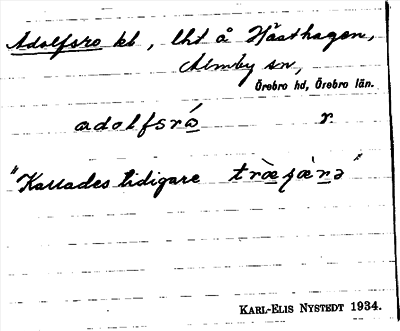 Adolfsro kb, lht å Hästhagen,
Almby sn,
Örebro hd, Örebro län.
adolfsró r
"Kallades tidigare træ̀ʂæ̀rə"
KARL-ELIS NYSTEDT 1934.